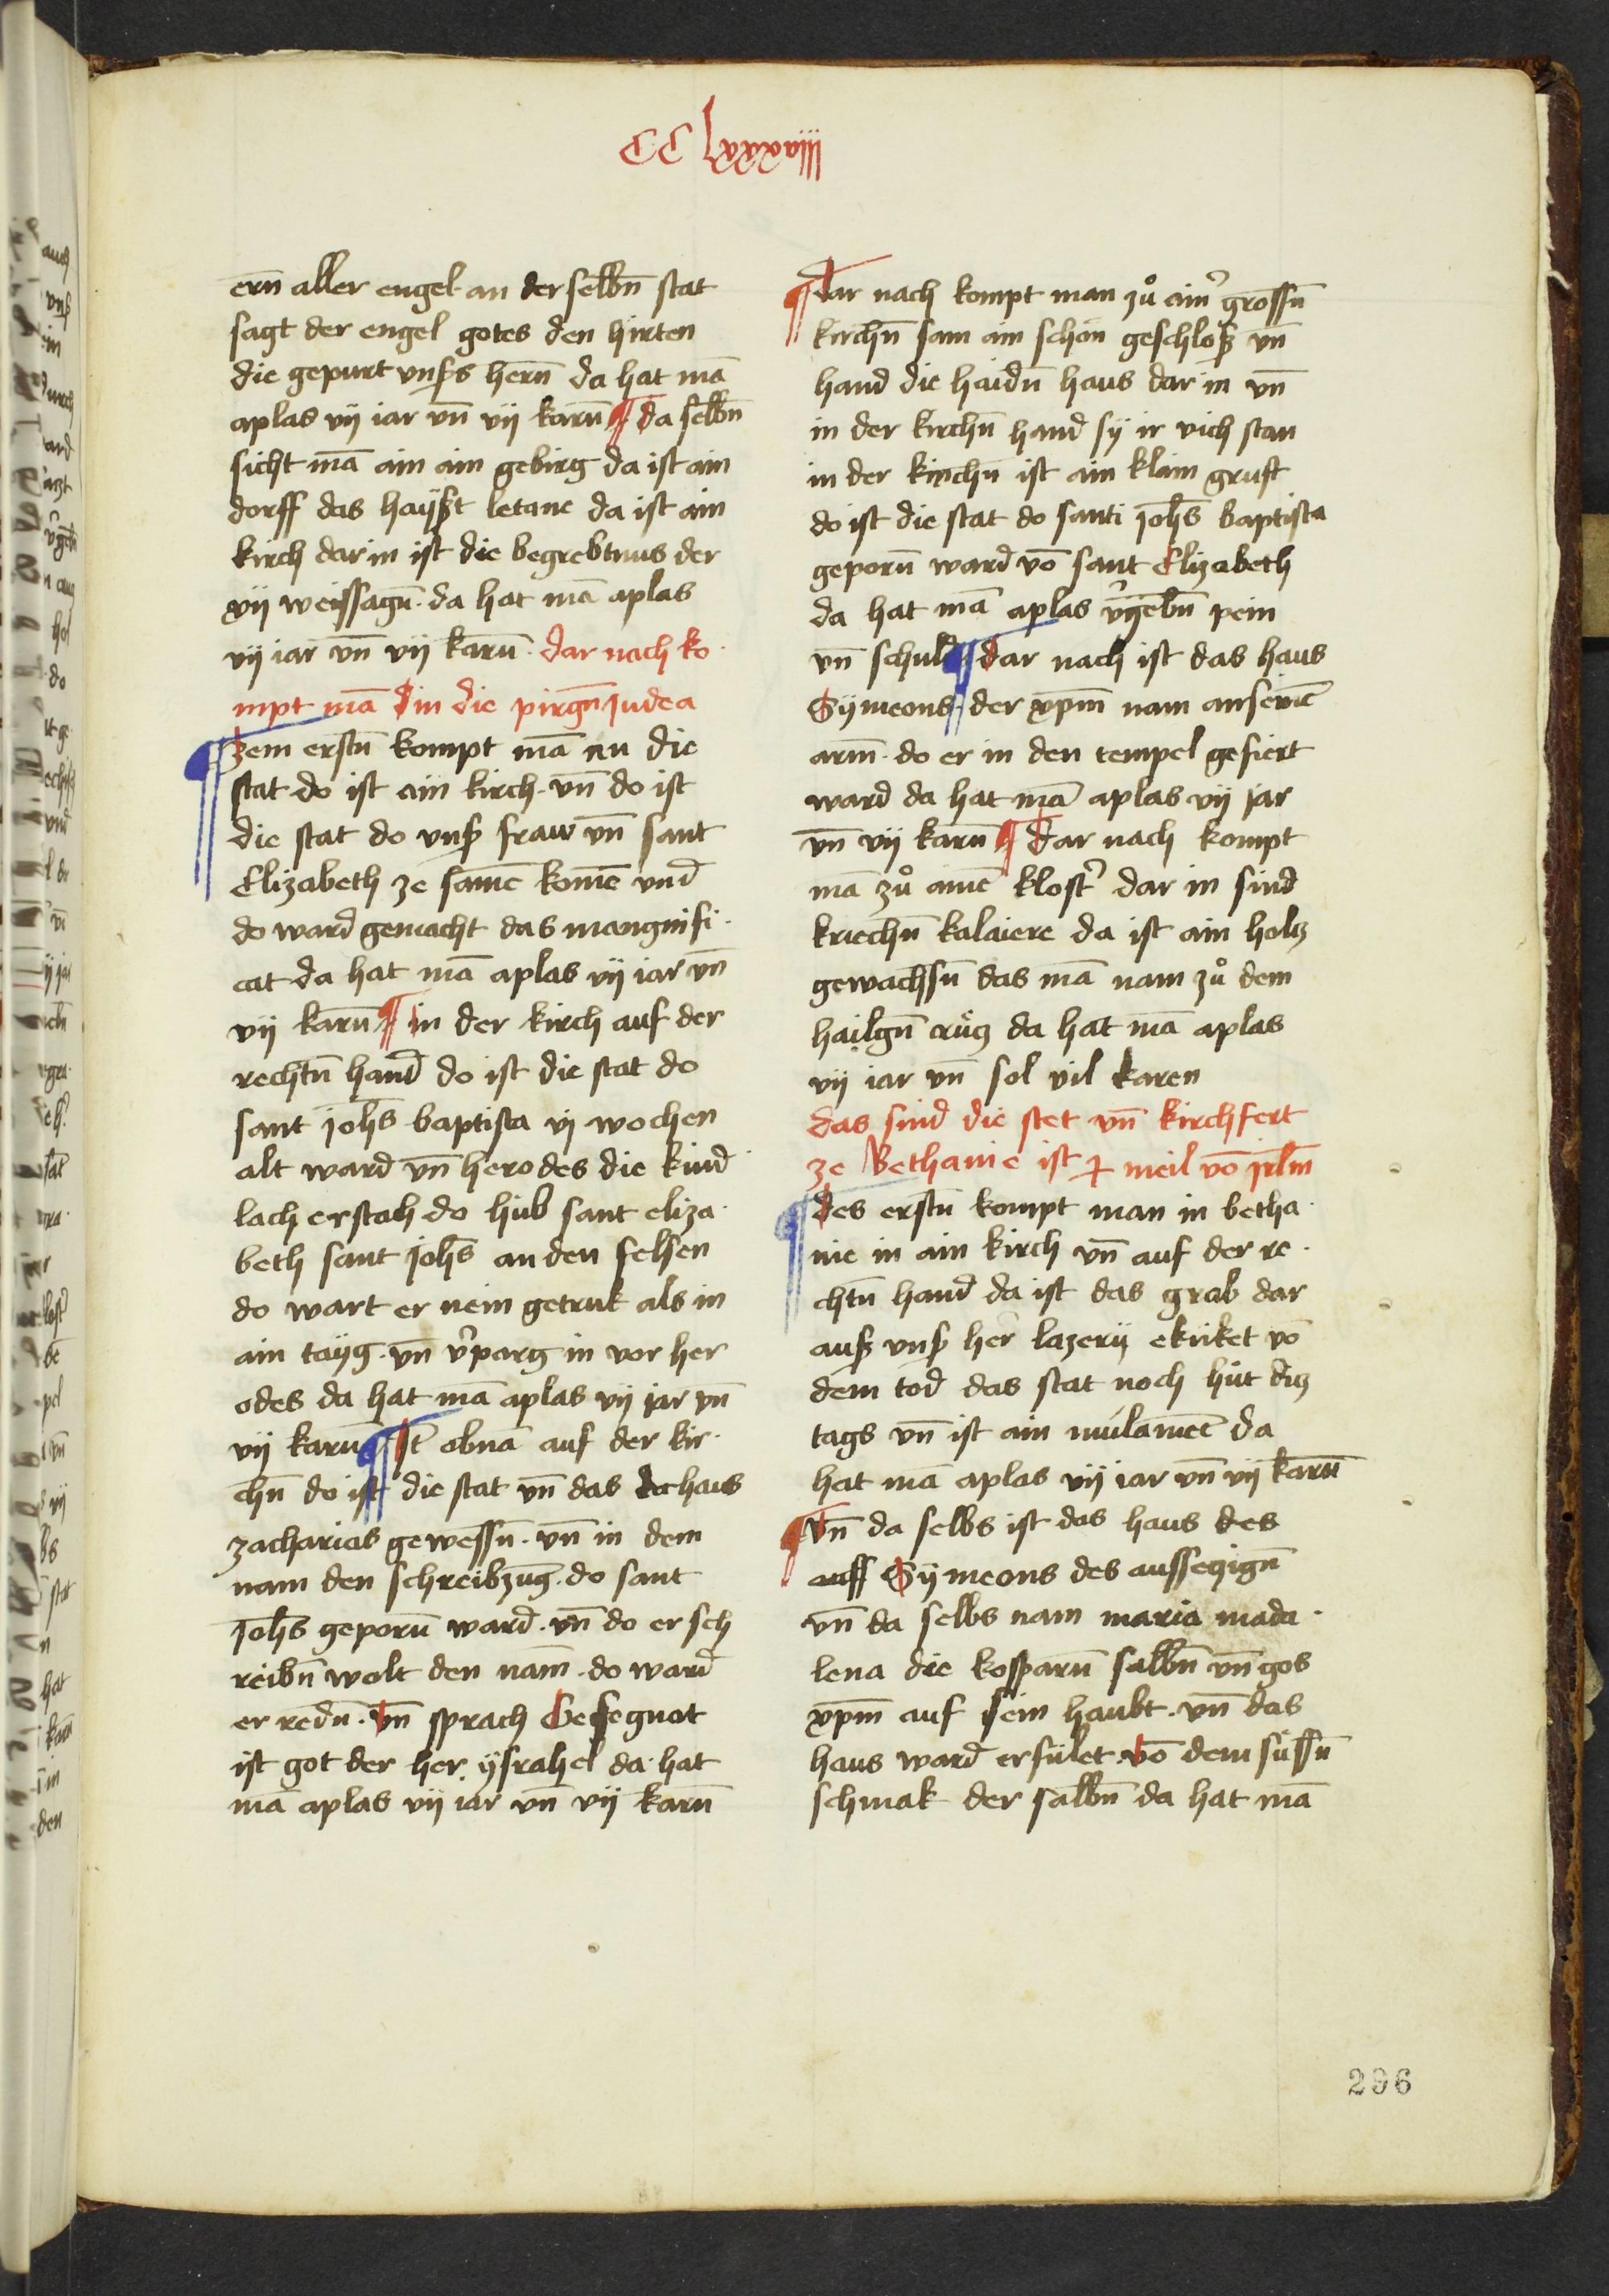 CC lxxxxviiij
ern̄ aller engel an der selbn̄ stat
sagt der engel gotes den hirten
die gepurt vnsers hern̄ da hat mā
aplas vij iar vn̄ vij karn̄ ¶ da selbn̄
sicht mā ain ain gebirg da ist ain
dorff das hayßt letane da ist ain
kirch dar in ist die begrebtnus der
xij weissagn̄ · da hat mā aplas
vij iar vn̄ vij karn̄ · dar nach ko·
mpt mā Jin die pirgn̄ Judea
¶ Zem erstn̄ kompt mā an die
stat do ist ain kirch · vn̄ do ist
die stat do vnser fraw vn̄ sant
Elizabeth ze samē komē vnd
do ward gemacht das mangnifi·
cat da hat mā aplas vij iar vn̄
vij karn̄ ¶ in der kirch auf der
rechtn̄ hand do ist die stat do
sant johs̄ baptista vj wochen
alt ward vn̄ herodes die kind
lach erstach do hub sant eliza·
beth sant johs̄ an den felsen
do wart er nein getruk als in
ain tayg · vn̄ v̓parg in vor her
odes da hat mā aplas vij jar vn̄
vij karn̄ ¶ It̄ obnā auf der kir·
chn̄ do ist die stat vn̄ das haus
zacharias gewessn̄ · vn̄ in dem
nam den schreibzug · do sant
Johs̄ geporn̄ ward · vn̄ do er sch
reibn̄ wolt den nam̄ · do ward
er redn̄ · vn̄ sprach Gesegnot
ist got der her ysrahel da hat
mā aplas vij iar vn̄ vij karn̄
¶ Dar nach kompt man zů ain̓ grossn̄
kirchn̄ sam ain schon geschloß vn̄
hand die haidn̄ haus dar in vn̄
in der kirchn̄ hand sy ir vich stan
in der kirchn̄ ist ain klain gruft
do ist die stat do santi johs̄ baptista
geporn̄ ward vō sant Elizabeth
da hat mā aplas v̓gebn̄ pein
vn̄ schuld ¶ dar nach ist das haus
Symeons · der xpm̄ nam an seinē
arm̄ · do er in den tempel gefiert
ward da hat mā aplas vij jar
vn̄ vij karn̄ ¶ Dar nach kompt
mā zů ainē klost̓ dar in sind
kriechn̄ kalaiere da ist ain holtz
gewachsn̄ das mā nam zů dem
hailgn̄ crütz da hat mā aplas
vij iar vn̄ sol vil karen
das sind die stet vn̄ kirchfert
ze Bethanie ist j meil vō jrl̄m
¶ des erstn̄ kompt man in betha·
nie in ain kirch vn̄ auf der re·
chtn̄ hand da ist das grab dar
auß vnser her lazerij ekriket vō
dem tod das stat noch hut ditz
tags vn̄ ist ain mulamēt da
hat mā aplas vij iar vn̄ vij karn̄
¶ Vn̄ da selbs ist das haus des
auff Symeons des aussetzign̄
vn̄ da selbs nam maria mada·
lena die kosparn̄ salbn̄ vn̄ gos
xpm̄ auf sein haubt · vn̄ das
haus ward erfulet vō dem sussn̄
schmak der salbn̄ da hat mā
296